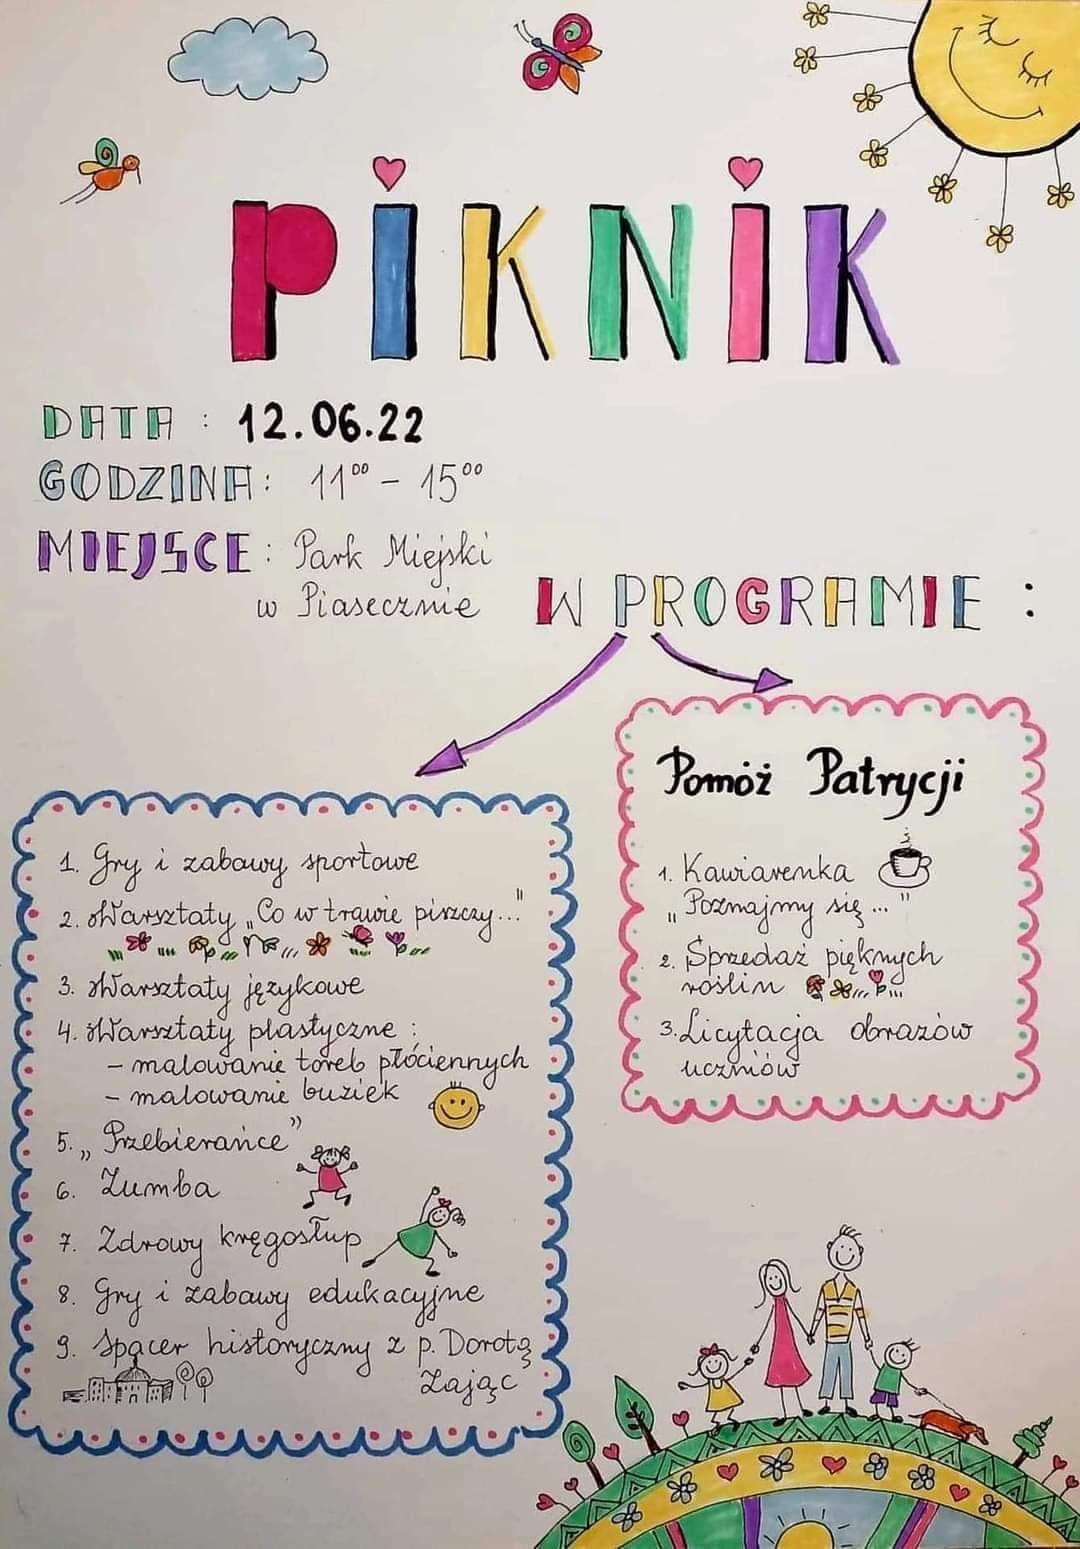 PIKNIK
DATA : 12.06.22
GODZINA: 11⁰⁰ - 15⁰⁰
MIEJSCE: Park Miejski
w Piasecznie
W PROGRAMIE :
1. Gry i zabawy sportowe
2. Warsztaty „Co w trawie piszczy..."
3. Warsztaty językowe
4. Warsztaty plastyczne :
- malowanie toreb płóciennych
- malowanie buziek
5. „Przebierańce"
6. Zumba
7. Zdrowy kręgosłup
8. Gry i zabawy edukacyjne
9. Spacer historyczny z p. Dorotą
Zając
Pomóż Patrycji
1. Kawiarenka
„Poznajmy się..."
2. Sprzedaż pięknych
roślin
3. Licytacja obrazów
uczniów